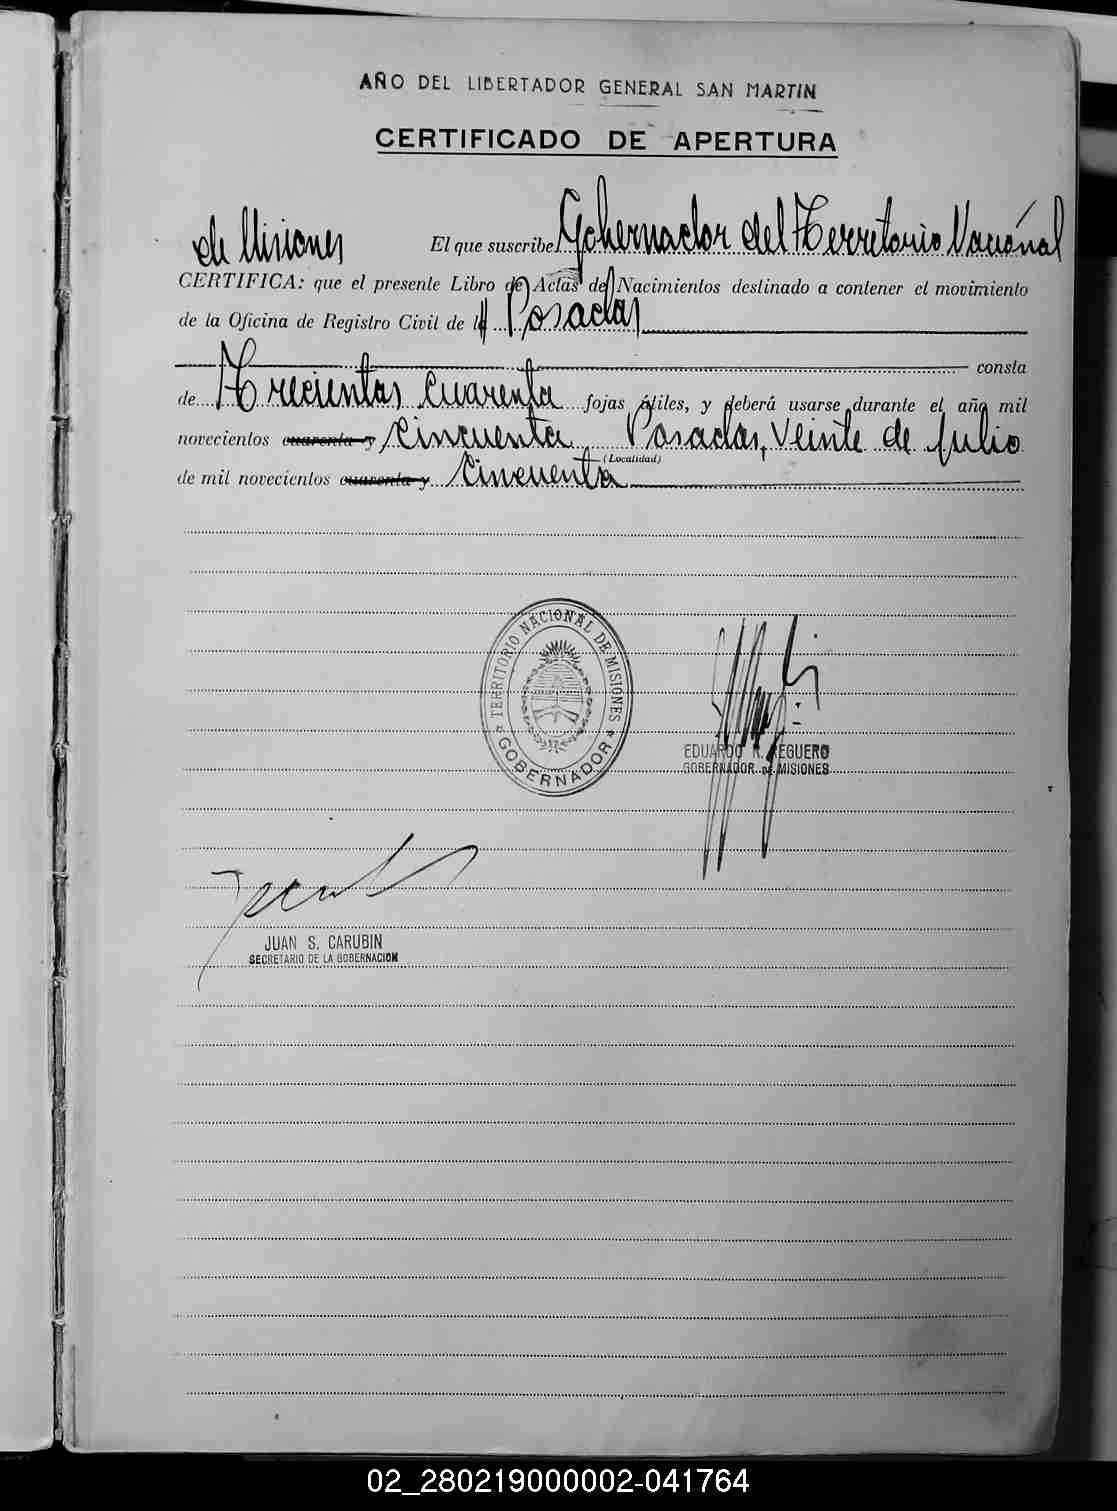 AÑO DEL LIBERTADOR GENERAL SAN MARTIN
CERTIFICADO DE APERTURA
El que suscribe Gobernador del Territorio Nacional
de Misiones
CERTIFICA: que el presente Libro de Actas de Nacimientos destinado a contener el movimiento
de la Oficina de Registro Civil de Posadas
consta
de Trecientas cuarenta fojas útiles, y deberá usarse durante el año mil
novecientos cuarenta y cincuenta Posadas, veinte de julio
(Localidad)
de mil novecientos cuarenta y cincuenta
TERRITORIO NACIONAL DE MISIONES
GOBERNADOR
EDUARDO K. REGUERO
GOBERNADOR DE MISIONES
JUAN S. CARUBIN
SECRETARIO DE LA GOBERNACION
02_280219000002-041764